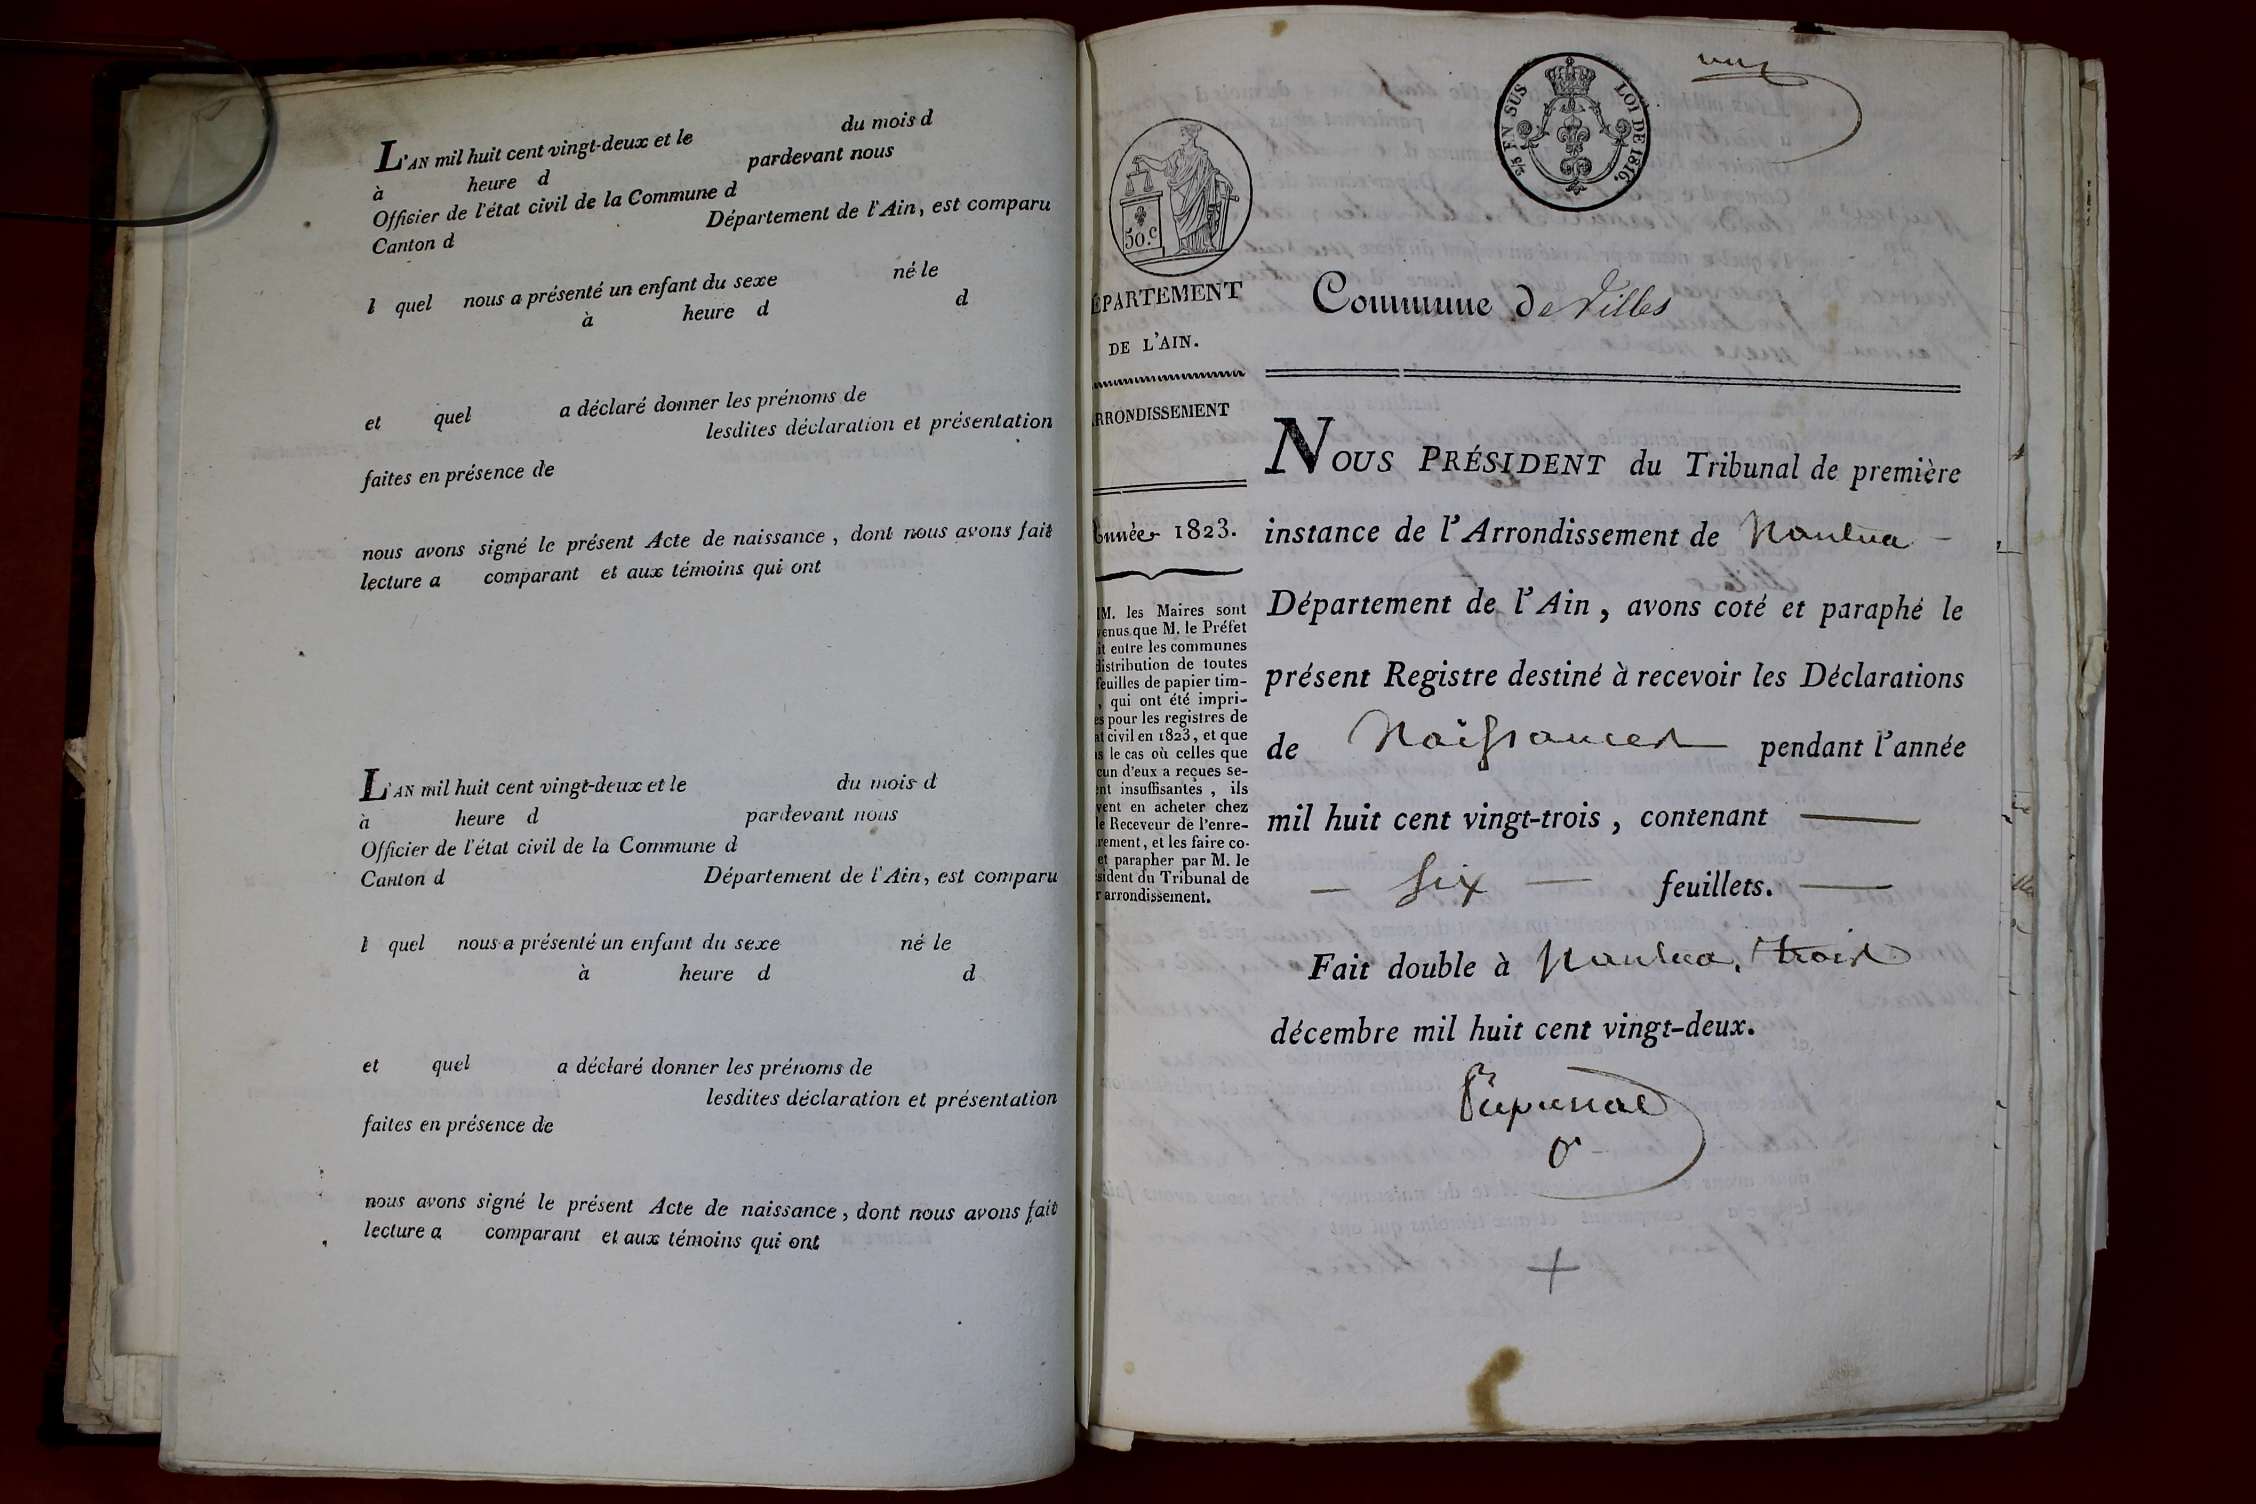 L'AN mil huit cent vingt-deux et le du mois d
à heure d pardevant nous
Officier de l'état civil de la Commune d
Canton d Département de l'Ain, est comparu
l quel nous a présenté un enfant du sexe né le
à heure d d
et quel a déclaré donner les prénoms de
lesdites déclaration et présentation
faites en présence de
nous avons signé le présent Acte de naissance, dont nous avons fait
lecture a comparant et aux témoins qui ont
L'AN mil huit cent vingt-deux et le du mois d
à heure d pardevant nous
Officier de l'état civil de la Commune d
Canton d Département de l'Ain, est comparu
l quel nous a présenté un enfant du sexe né le
à heure d d
et quel a déclaré donner les prénoms de
lesdites déclaration et présentation
faites en présence de
nous avons signé le présent Acte de naissance, dont nous avons fait
lecture a comparant et aux témoins qui ont
50.c
2/5 EN SUS LOI DE 1816.
un
ÉPARTEMENT
DE L'AIN.
RRONDISSEMENT
Année 1823.
M. les Maires sont
venus que M. le Préfet
it entre les communes
distribution de toutes
feuilles de papier tim-
, qui ont été impri-
es pour les registres de
at civil en 1823, et que
s le cas où celles que
cun d'eux a reçues se-
ent insuffisantes, ils
vent en acheter chez
le Receveur de l'enre-
rement, et les faire co-
et parapher par M. le
sident du Tribunal de
r arrondissement.
Commune de Villes
NOUS PRÉSIDENT du Tribunal de première
instance de l'Arrondissement de Nantua
Département de l'Ain, avons coté et paraphé le
présent Registre destiné à recevoir les Déclarations
de Naissances pendant l'année
mil huit cent vingt-trois, contenant
six feuillets.
Fait double à Nantua, trois
décembre mil huit cent vingt-deux.